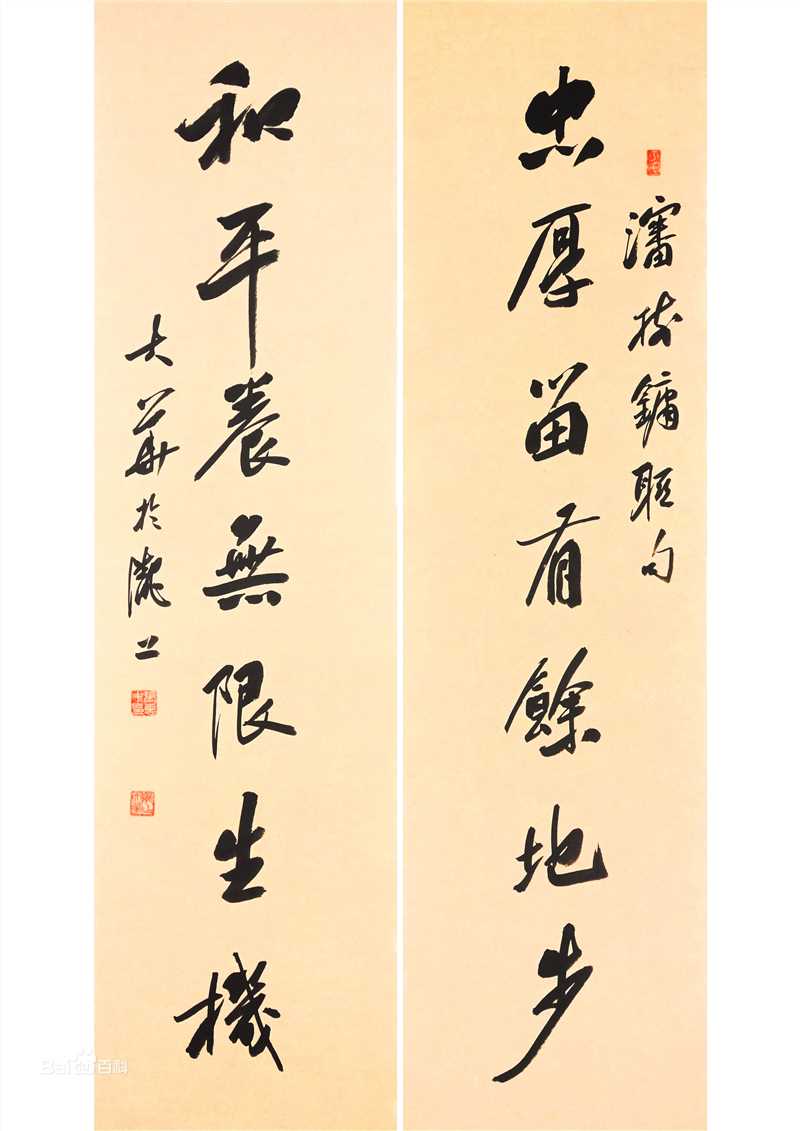 瀋樹鏞聯句
忠厚留有餘地步
和平養無限生機
大華於上
Bai百科